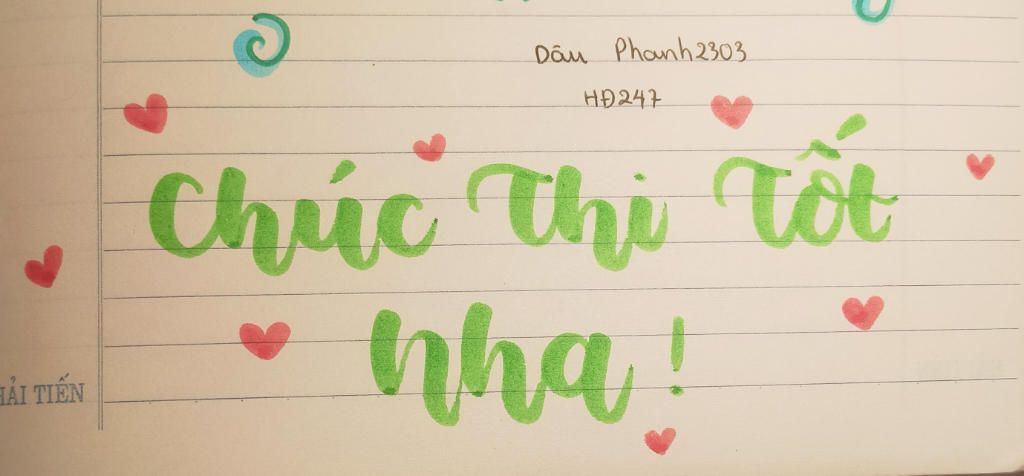 Dâu Phanh2303
HĐ247
Chúc Thi Tốt
nha!
HẢI TIẾN